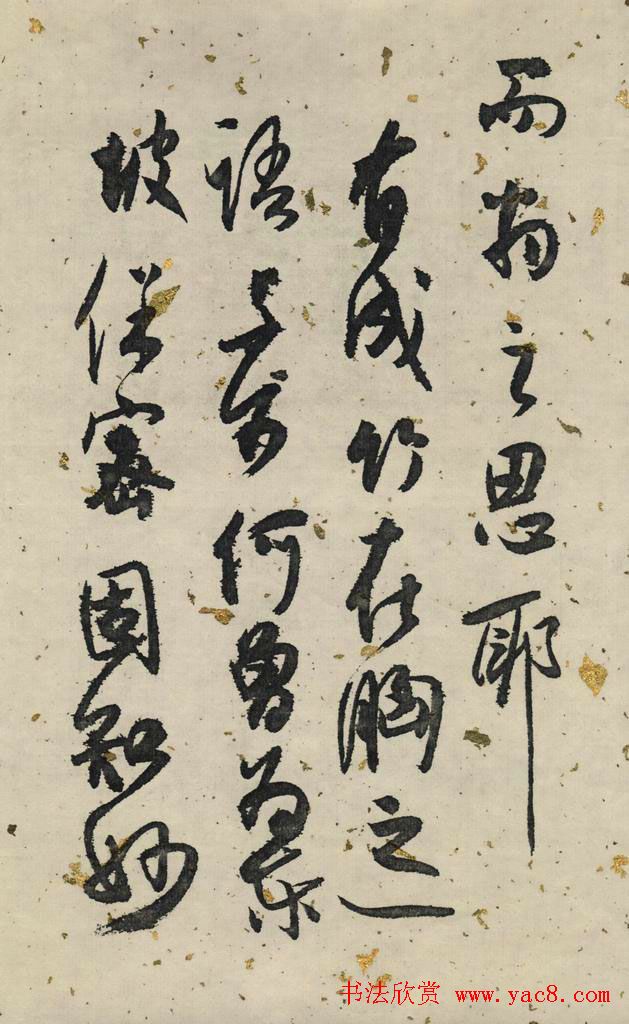 而之思耶
有成竹在胸之一
語何曾為东
坡保密固知妙
书法欣赏 www.yac8.com